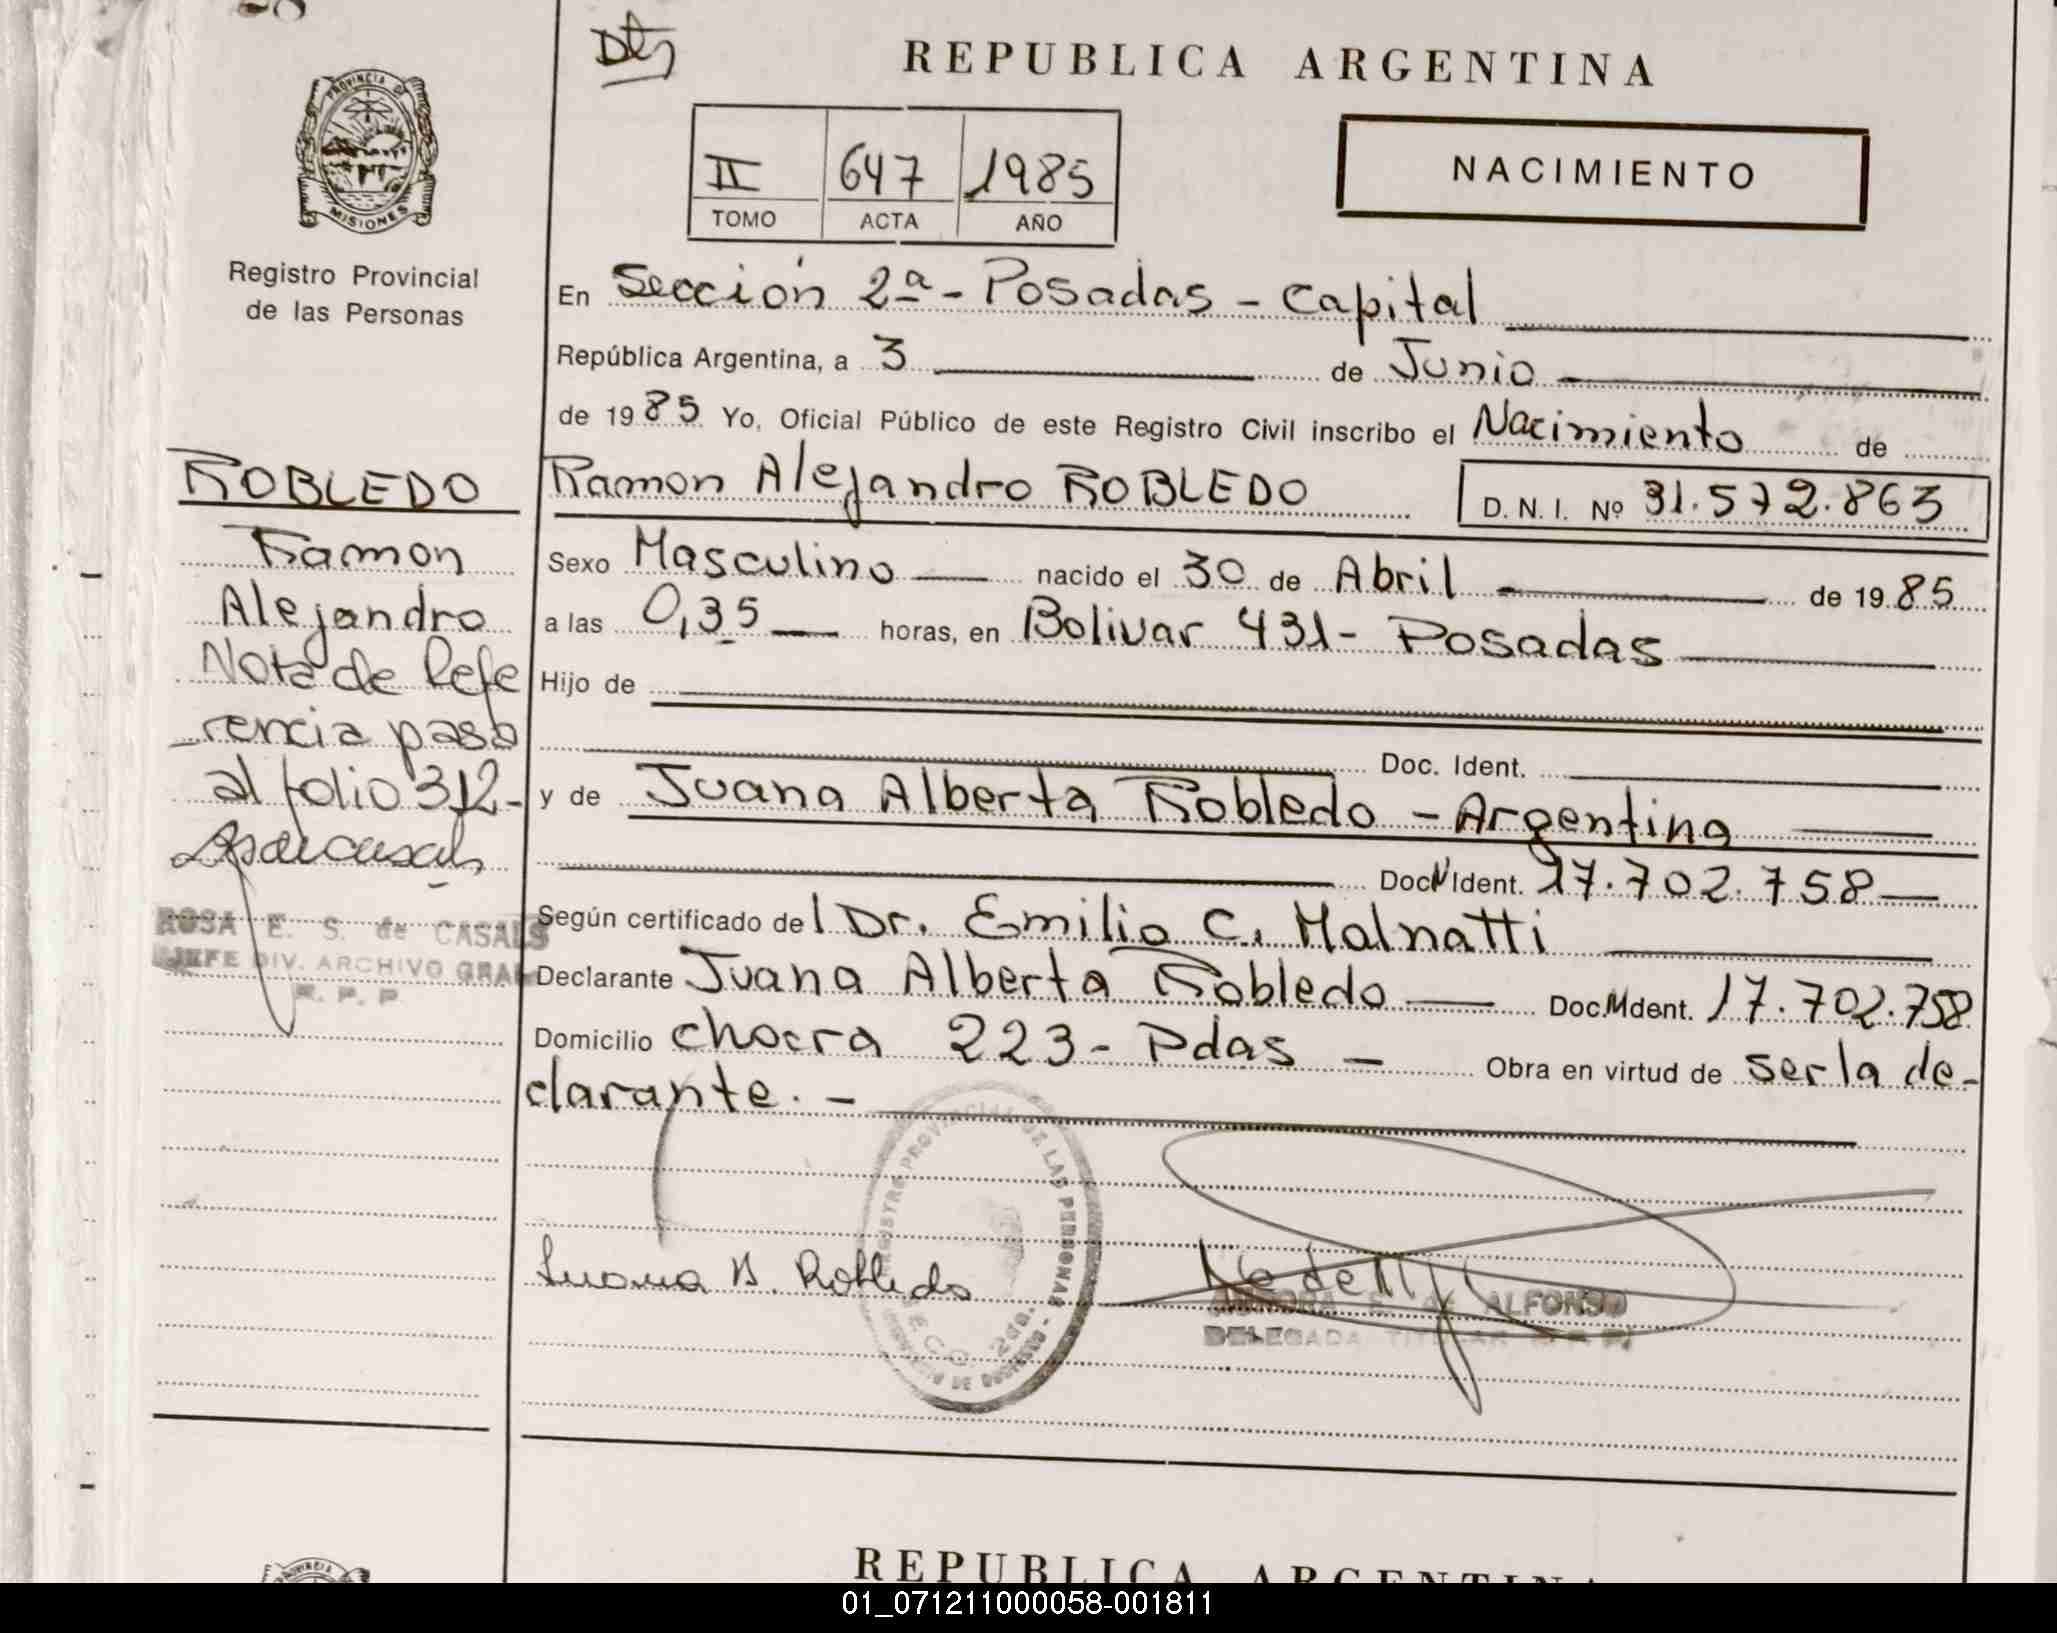 Dts
REPUBLICA ARGENTINA
II 647 1985
TOMO ACTA AÑO
NACIMIENTO
PROVINCIA DE
MISIONES
Registro Provincial
de las Personas
En Sección 2ª - Posadas - Capital
República Argentina, a 3 de Junio
de 1985 Yo, Oficial Público de este Registro Civil inscribo el Nacimiento de
Ramon Alejandro ROBLEDO D. N. I. Nº 31.572.863
Sexo Masculino nacido el 30 de Abril de 1985
a las 0,35 horas, en Bolivar 431 - Posadas
Hijo de
Doc. Ident.
y de Juana Alberta Robledo - Argentina
Doc Nº Ident. 17.702.758
Según certificado del Dr. Emilio C. Malnatti
Declarante Juana Alberta Robledo Doc. Ident. 17.702.758
Domicilio chacra 223 - Pdas - Obra en virtud de ser la de-
clarante. -
ROBLEDO
Ramon
Alejandro
Nota de Refe
rencia paso
al folio 312-
ROSA E. S. de CASALS
JEFE DIV. ARCHIVO GRAL
R. P. P
Juana A. Robledo
REGISTRO PROVINCIAL DE LAS PERSONAS
SECC. 2da.
PROVINCIA DE MISIONES
E. de ALFONSO
DELEGADA TITULAR
REPUBLICA ARGENTINA
01_071211000058-001811